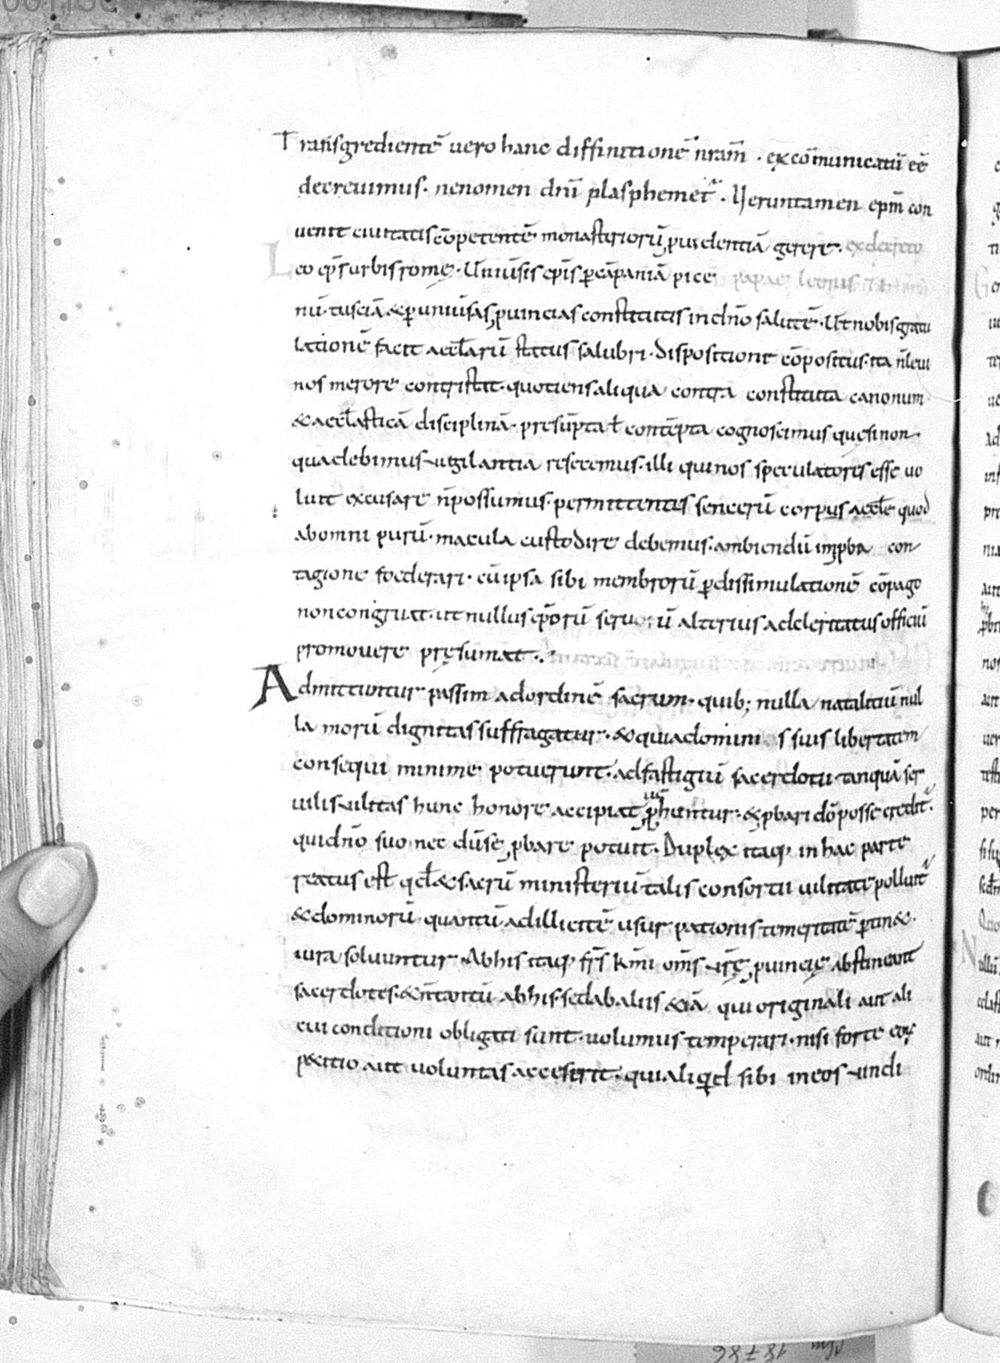 Transgrediente͞ uero hanc diffinitione͞ nra͞m . exco͞municatu͞ ee͞
decreuimus . nenomen dn͞i plasphemet͛ . Ueruntamen ep͞m con
uenit ciuitatis co͞petente͞ monasterioru͞ ꝓuidentia͞ gerere . ex decreto
Leo ep͞s urbis rome . Uniu͛sis ep͞is ꝑ ca͞pania͞ pice papae leonis
nu͞ . tuscia͞ & ꝑ uniu͛sas ꝓuincias constitutis in dn͞o salute͞ . Ut nobis gratu
latione͞ facit aecl͞aru͞ status salubri . dispositione co͞positus . ita n͞ leui
nos merore contristat . quotiens aliqua contra constituta canonum
& aecl͞astica͞ disciplina͞ . presu͞pta ł conte͞pta cognoscimus quę si non
qua debimus uigilantia resecemus . illi qui nos speculatores esse uo
luit excusare n͞ possumus . permittentes senceru͞ corpus aeccl͞e quod
ab omni puru͞ . macula custodire debemus . ambiendu͞ inꝓba con
tagione foederari . cu͞ ipsa sibi membroru͞ ꝑ dissimulatione͞ co͞pago
non congruat . ut nullus ep͞oru͞ seruu͞ alterius ad cleritatus officiu͞
promouere pręsumat .
Admittuntur passim ad ordine͞ sacrum . quib; nulla natalitiu͞ nul
la moru͞ dignitas suffragatur . & qui a dominis suis libertatem
consequi minime potuerunt . ad fastigiu͞ sacerdotii tanqua͞ ser
uilis uilitas hunc honore accipiat ꝓhuntur . & ꝓbari do͞ posse credit͛ .
qui dn͞o suo nec du͞ se ꝓbare potuit . Duplex itaq; in hac parte
reatus est qd͞ & sacru͞ ministeriu͞ talis consortii uilitate polluit͛
& dominoru͞ quantu͞ ad illicite͞ usurpationis temeritate͞ ꝑtin& .
iura soluuntur . Ab his itaq; fr͞s km͞i om͞s ur͞ę ꝓuincię abstineant
sacerdotes . & n͞ tantu͞ ab his . sed ab aliis & ia͞ qui originali aut ali
cui conditioni obligati sunt . uolumus temperari . nisi forte eoꝝ
p&itio aut uoluntas accesserit . qui aliquid sibi in eos uindi